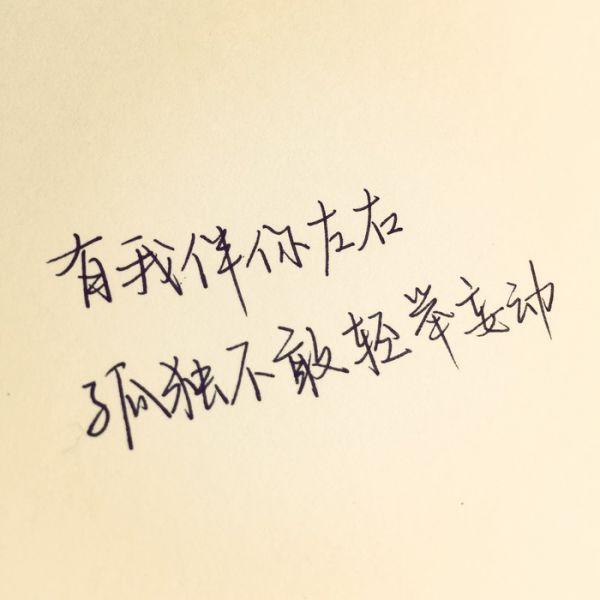 有我伴你左右
孤独不敢轻举妄动